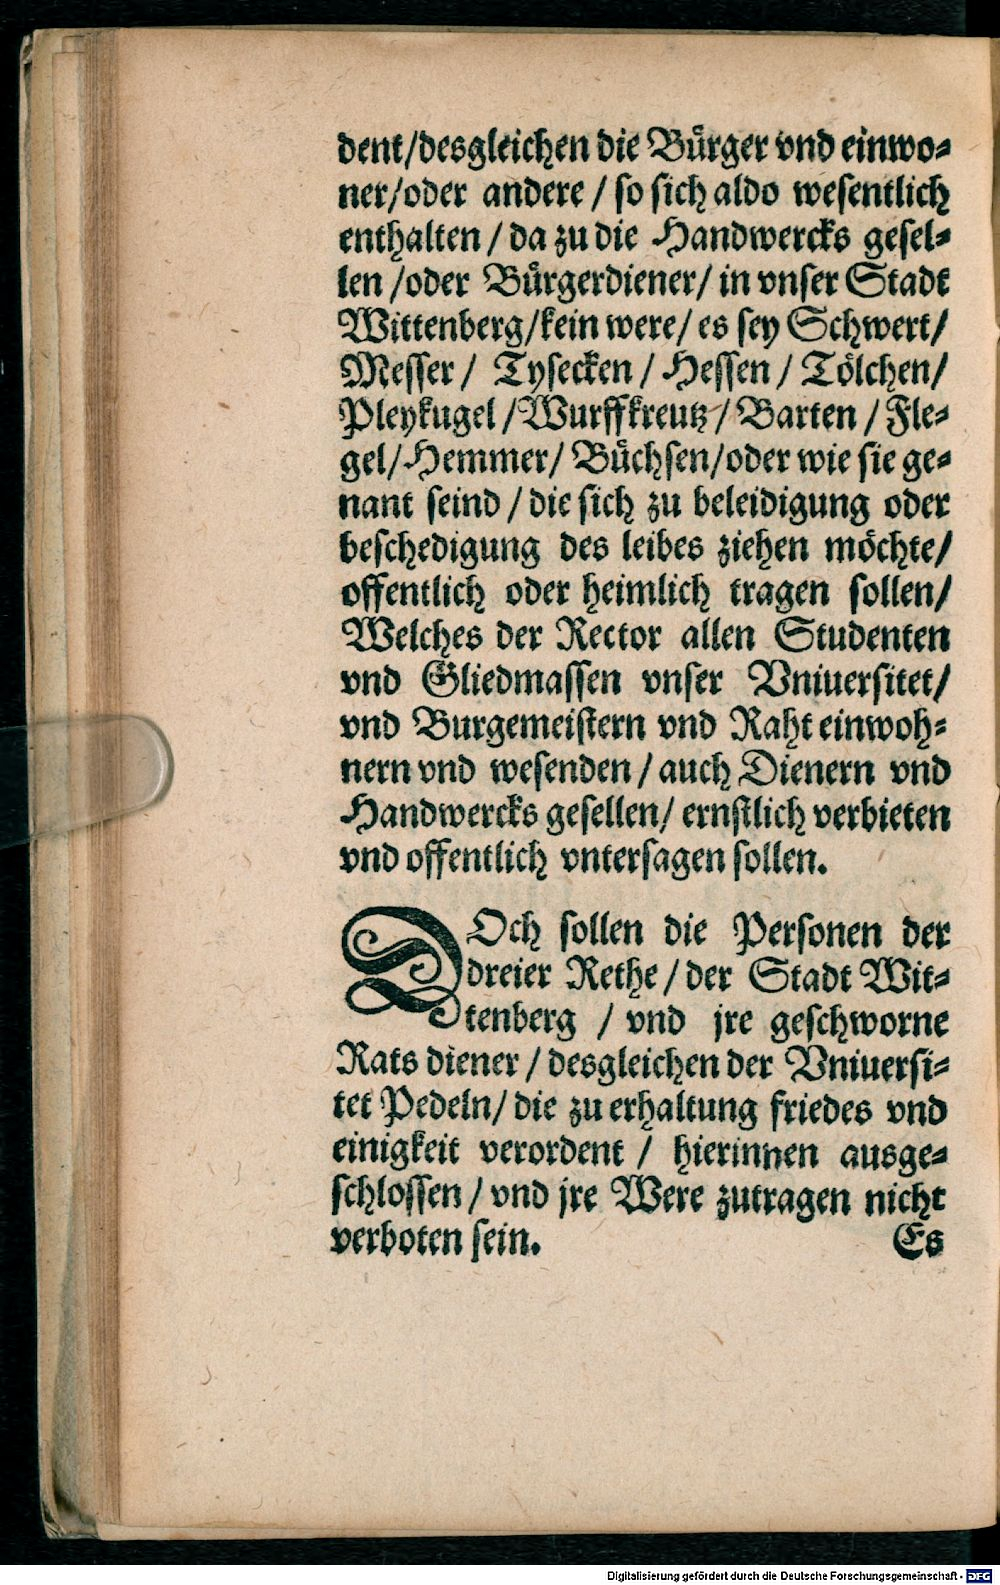 dent/desgleichen die Bürger vnd einwo=
ner/oder andere / so sich aldo wesentlich
enthalten / da zu die Handwercks gesel=
len /oder Bürgerdiener/ in vnser Stadt
Wittenberg/kein were/ es sey Schwert/
Messer / Tysecken / Hessen / Tölchen/
Pleykugel /Wurffkreutz / Barten / Fle=
gel/Hemmer/ Büchsen/oder wie sie ge=
nant seind / die sich zu beleidigung oder
beschedigung des leibes ziehen möchte/
offentlich oder heimlich tragen sollen/
Welches der Rector allen Studenten
vnd Gliedmassen vnser Vniuersitet/
vnd Burgemeistern vnd Raht einwoh=
nern vnd wesenden / auch Dienern vnd
Handwercks gesellen/ ernstlich verbieten
vnd offentlich vntersagen sollen.
DOch sollen die Personen der
dreier Rethe / der Stadt Wit=
tenberg / vnd jre geschworne
Rats diener / desgleichen der Vniuersi=
tet Pedeln/ die zu erhaltung friedes vnd
einigkeit verordent / hierinnen ausge=
schlossen / vnd jre Were zutragen nicht
verboten sein. Es
Digitalisierung gefördert durch die Deutsche Forschungsgemeinschaft - DFG